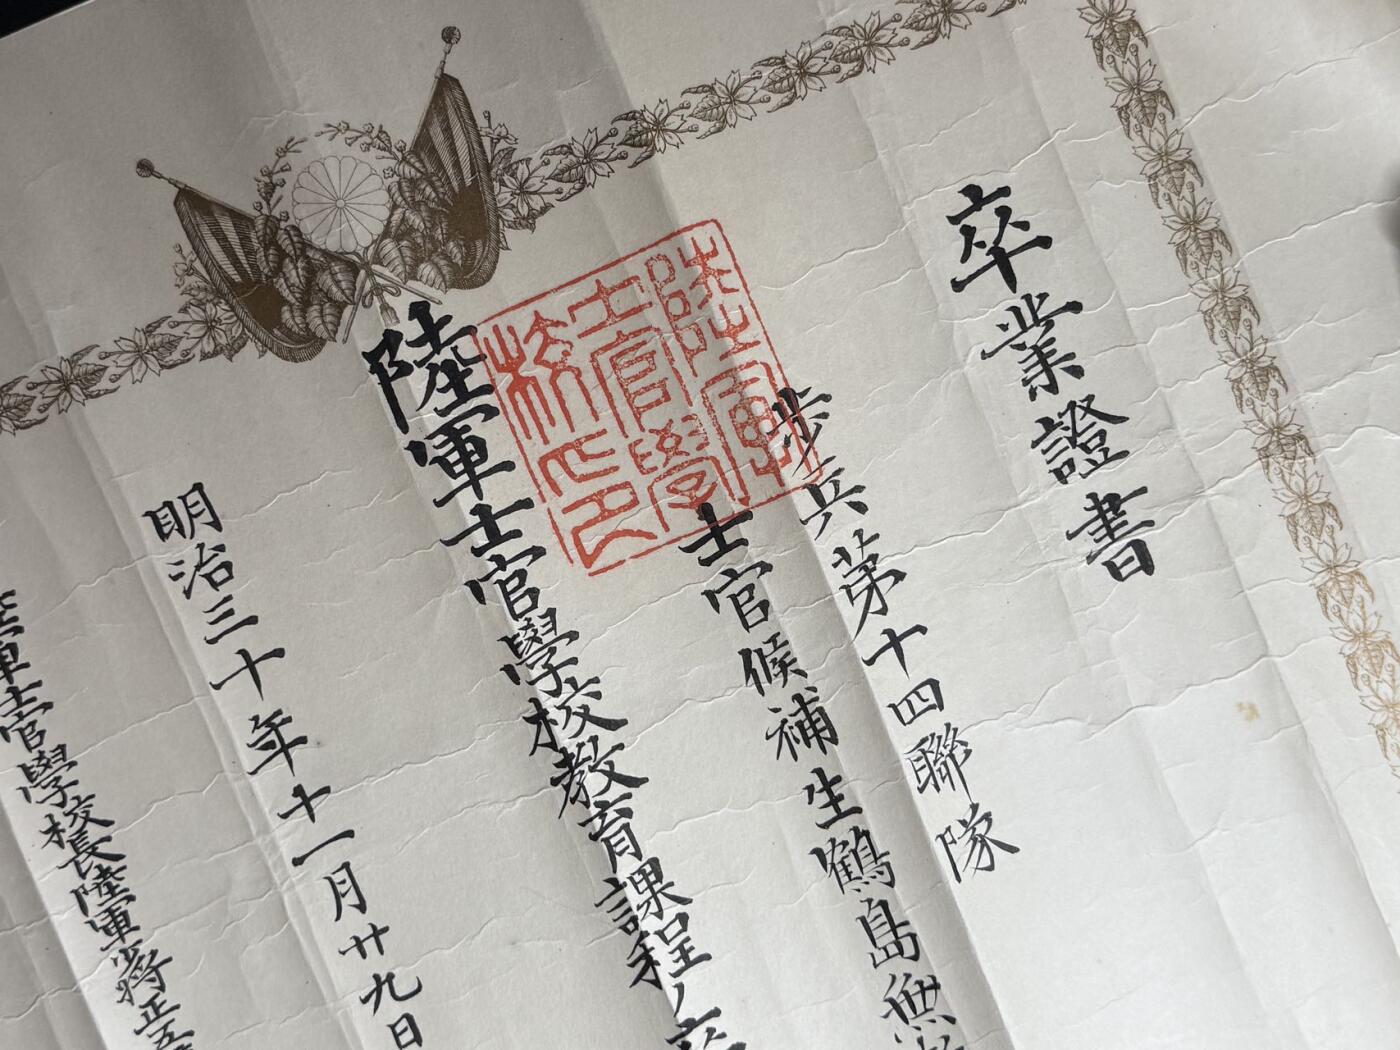 卒業證書
歩兵第十四聯隊
士官候補生鶴島
陸軍士官學校印
陸軍士官學校教育課程ノ
明治三十年十一月廿九日
陸軍士官學校長陸軍少將正五